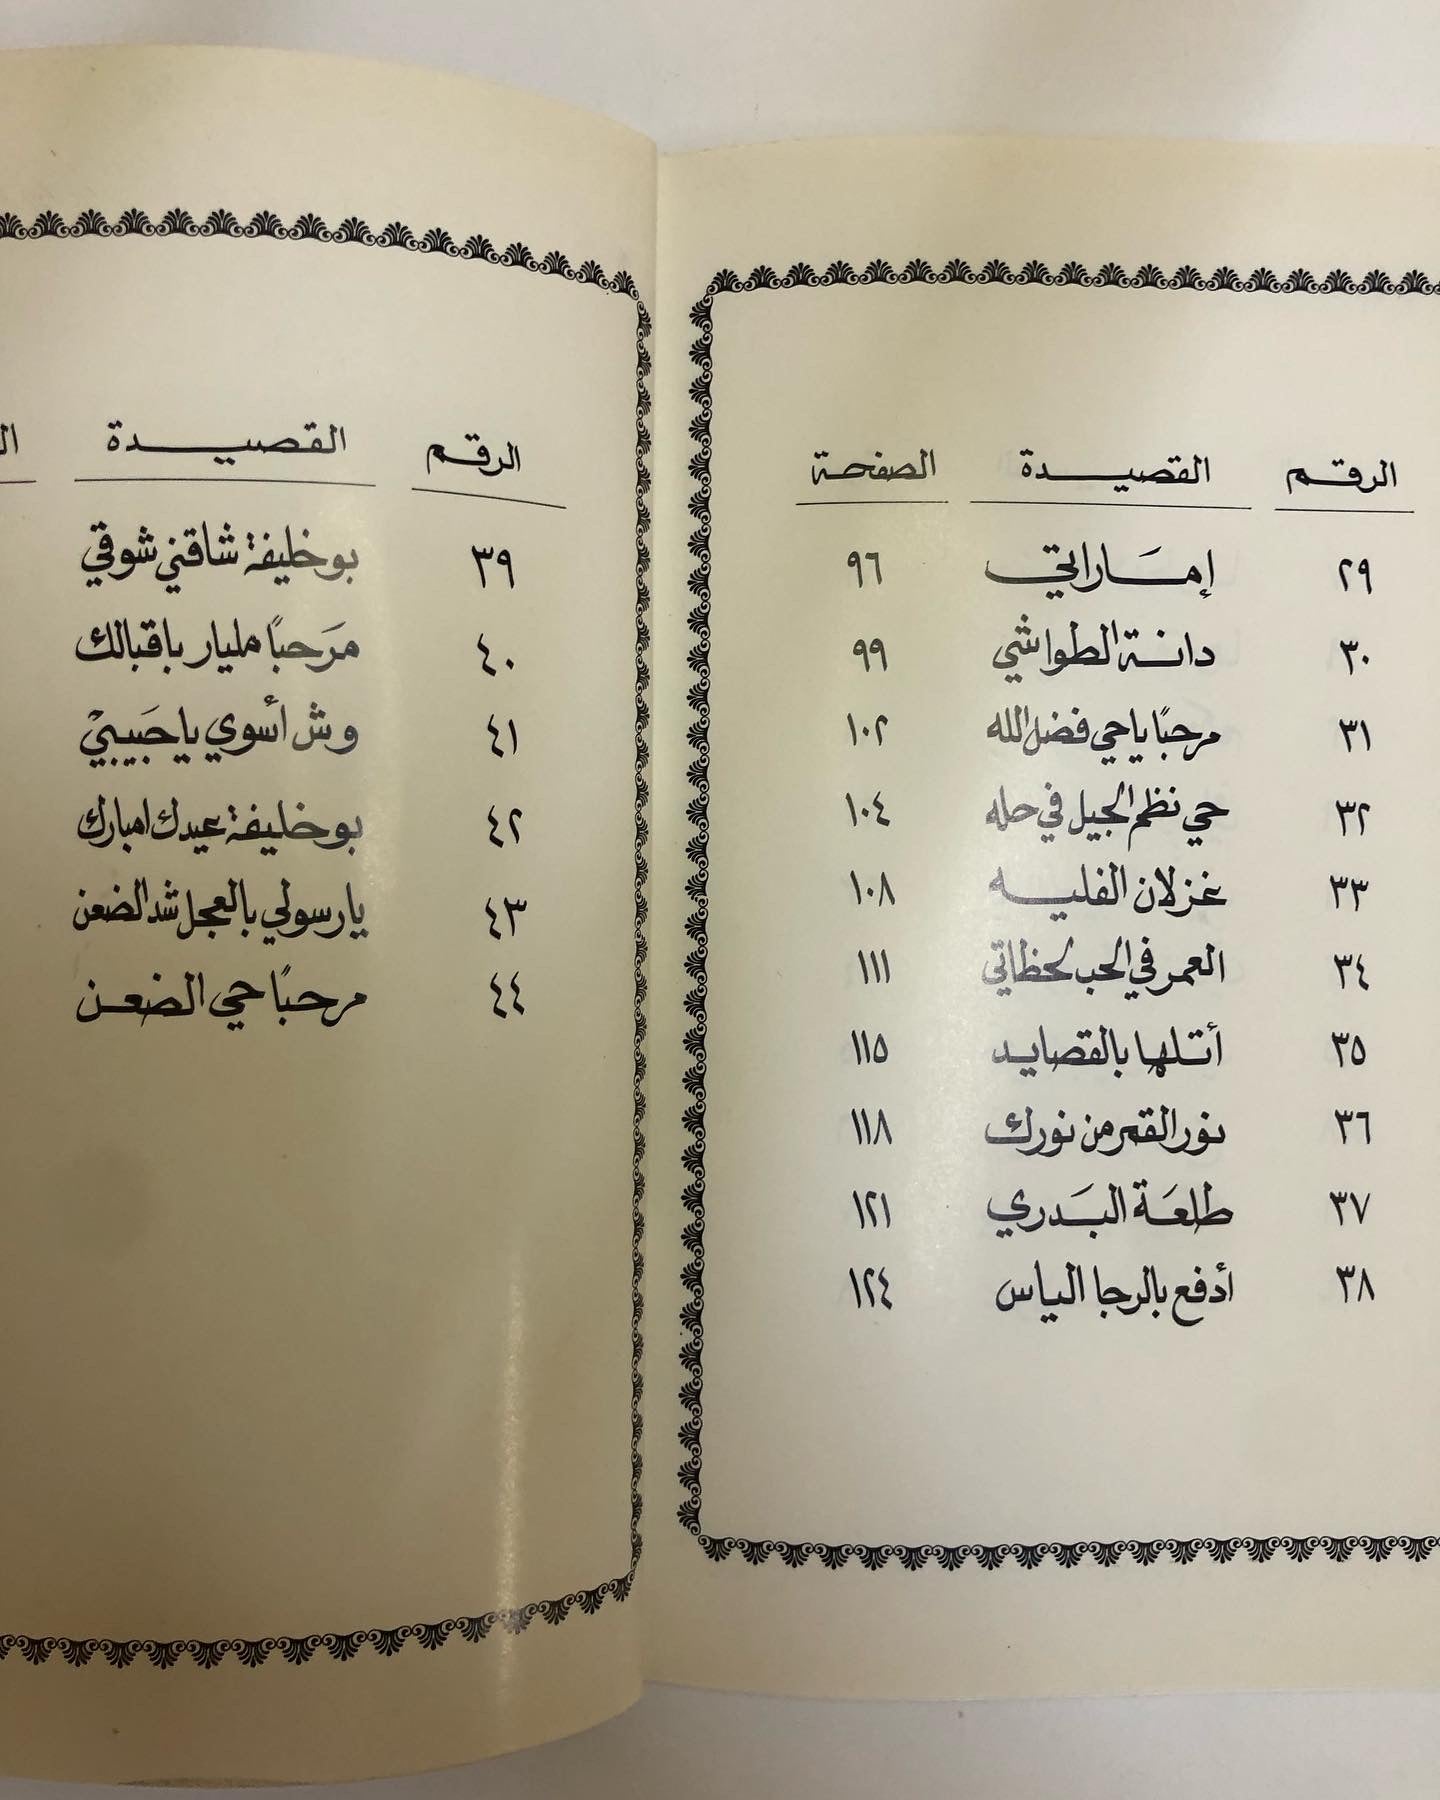 الرقم القصيدة الصفحة
٢٩ إماراتي ٩٦
٣٠ دانة الطواشي ٩٩
٣١ مرحبًا ياحي فضل الله ١٠٢
٣٢ حي نظم الجيل في حله ١٠٤
٣٣ غزلان الفليه ١٠٨
٣٤ العمر في الحب لحظاتي ١١١
٣٥ أتلها بالقصايد ١١٥
٣٦ نور القمر من نورك ١١٨
٣٧ طلعَة البَدري ١٢١
٣٨ أدفع بالرجا الياس ١٢٤
الرقم القصيدة
٣٩ بوخليفة شاقني شوقي
٤٠ مَرَحبًا مليار باقبالك
٤١ وش أسوي ياحَبيبيْ
٤٢ بوخليفة عيدك امبارك
٤٣ يارسولي بالعجل شد الضعن
٤٤ مرحبًا حي الضعن